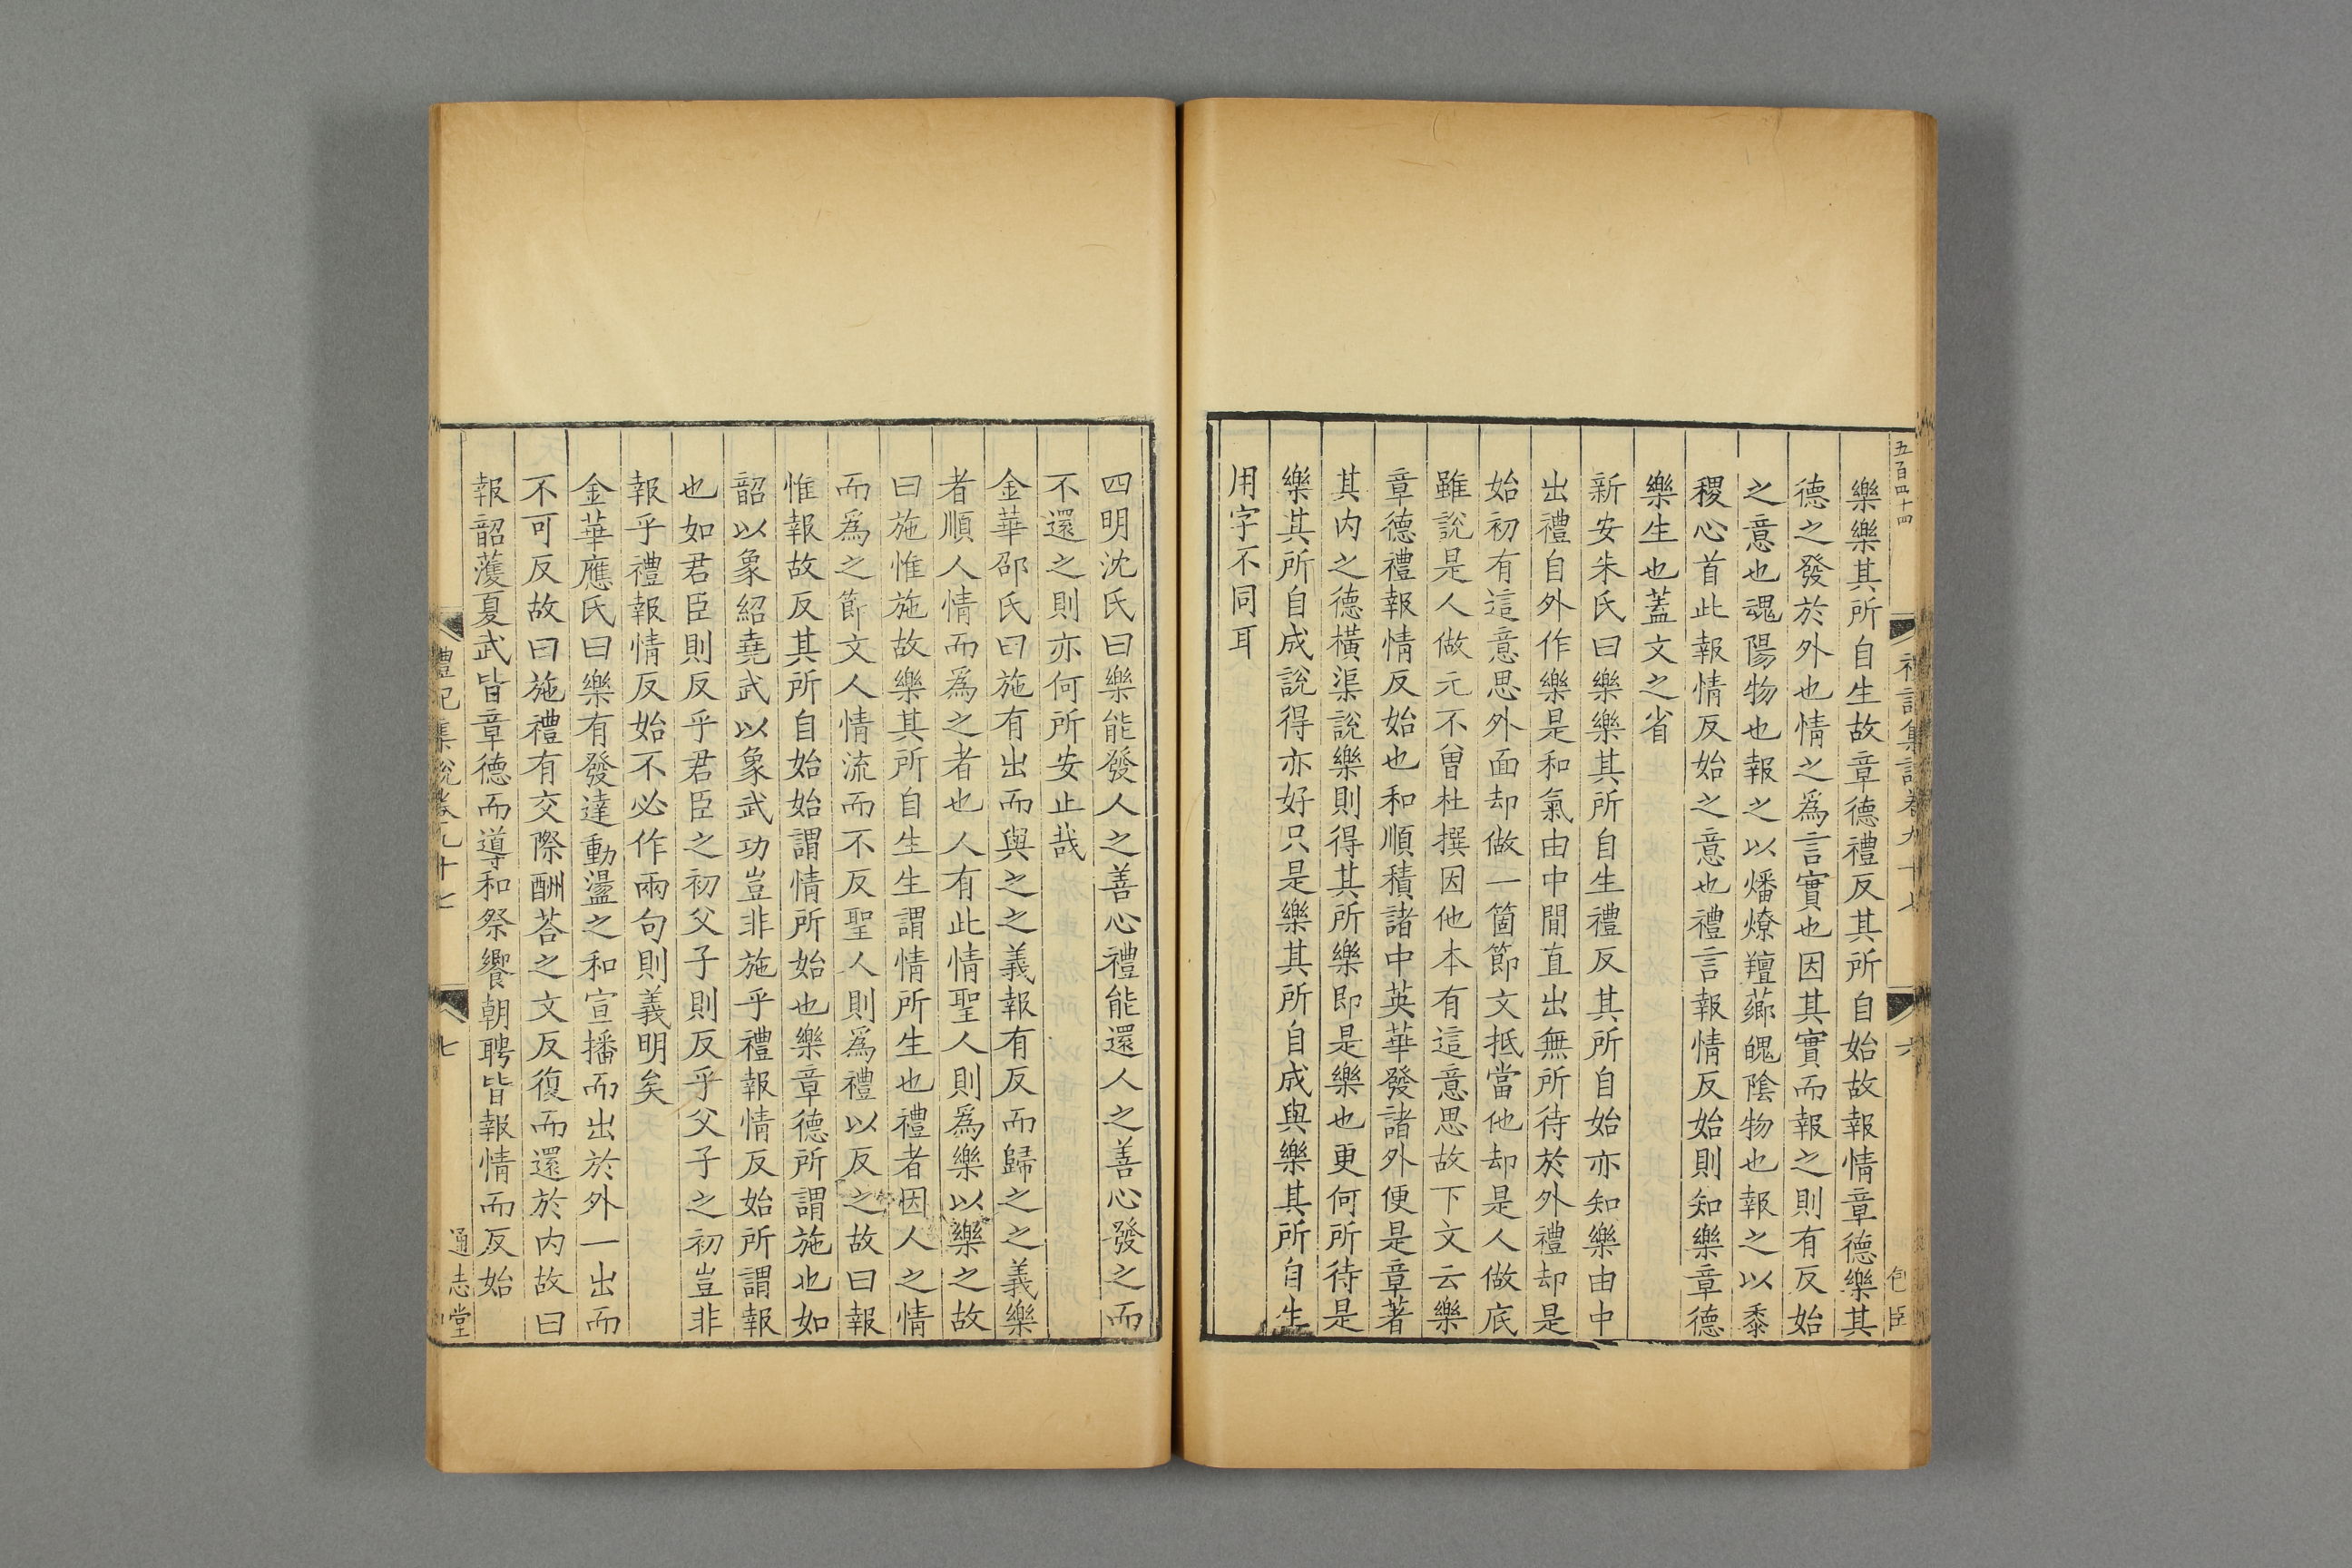 五百四十四
禮記集說卷九十七
六
包臣
樂樂其所自生故章德禮反其所自始故報情章德樂其
德之發於外也情之爲言實也因其實而報之則有反始
之意也魂陽物也報之以燔燎羶薌魄陰物也報之以黍
稷心首此報情反始之意也禮言報情反始則知樂章德
樂生也蓋文之省
新安朱氏曰樂樂其所自生禮反其所自始亦知樂由中
出禮自外作樂是和氣由中間直出無所待於外禮却是
始初有這意思外面却做一箇節文抵當他却是人做底
雖說是人做元不曾杜撰因他本有這意思故下文云樂
章德禮報情反始也和順積諸中英華發諸外便是章著
其內之德橫渠說樂則得其所樂即是樂也更何所待是
樂其所自成說得亦好只是樂其所自成與樂其所自生
用字不同耳
四明沈氏曰樂能發人之善心禮能還人之善心發之而
不還之則亦何所安止哉
金華邵氏曰施有出而與之之義報有反而歸之之義樂
者順人情而爲之者也人有此情聖人則爲樂以樂之故
曰施惟施故樂其所自生生謂情所生也禮者因人之情
而爲之節文人情流而不反聖人則爲禮以反之故曰報
惟報故反其所自始始謂情所始也樂章德所謂施也如
韶以象紹堯武以象武功豈非施乎禮報情反始所謂報
也如君臣則反乎君臣之初父子則反乎父子之初豈非
報乎禮報情反始不必作兩句則義明矣
金華應氏曰樂有發達動盪之和宣播而出於外一出而
不可反故曰施禮有交際酬荅之文反復而還於內故曰
報韶濩夏武皆章德而導和祭饗朝聘皆報情而反始
禮記集說卷九十七
七
通志堂